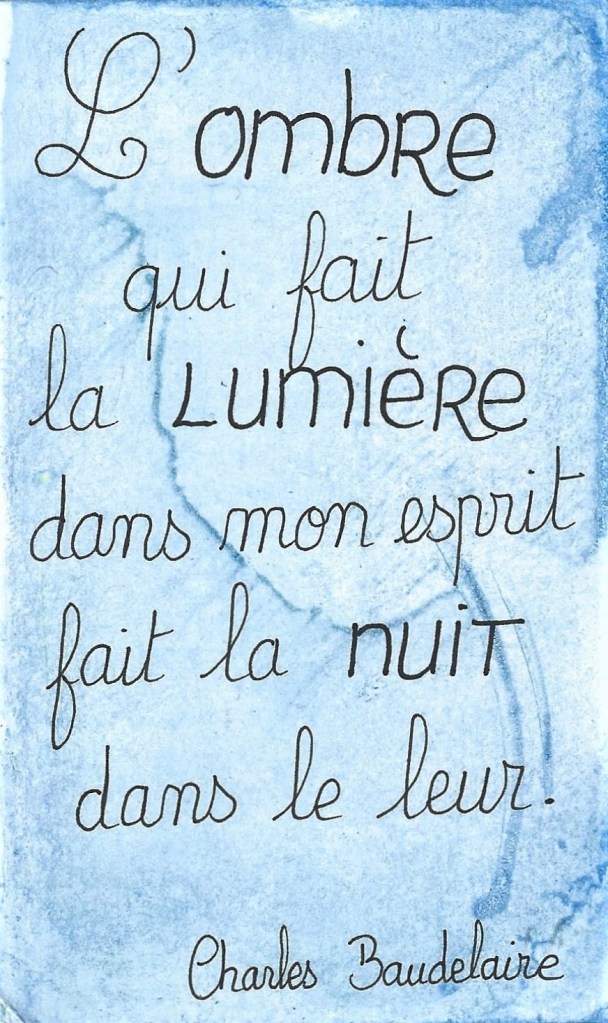 L'ombre
qui fait
la lumière
dans mon esprit
fait la nuit
dans le leur.
Charles Baudelaire